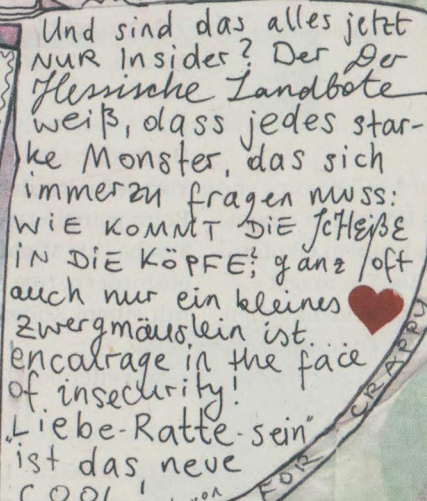 Und sind das alles jetzt
NUR Insider? Der Der
Hessische Landbote
weiß, dass jedes star-
ke Monster, das sich
immerzu fragen muss:
WIE KOMMT DIE SCHEIßE
IN DIE KÖPFE?, ganz oft
auch nur ein kleines
Zwergmäuslein ist.
encourage in the face
of insecurity!
"Liebe-Ratte-sein"
ist das neue
COOL!
FOR CRAPPY